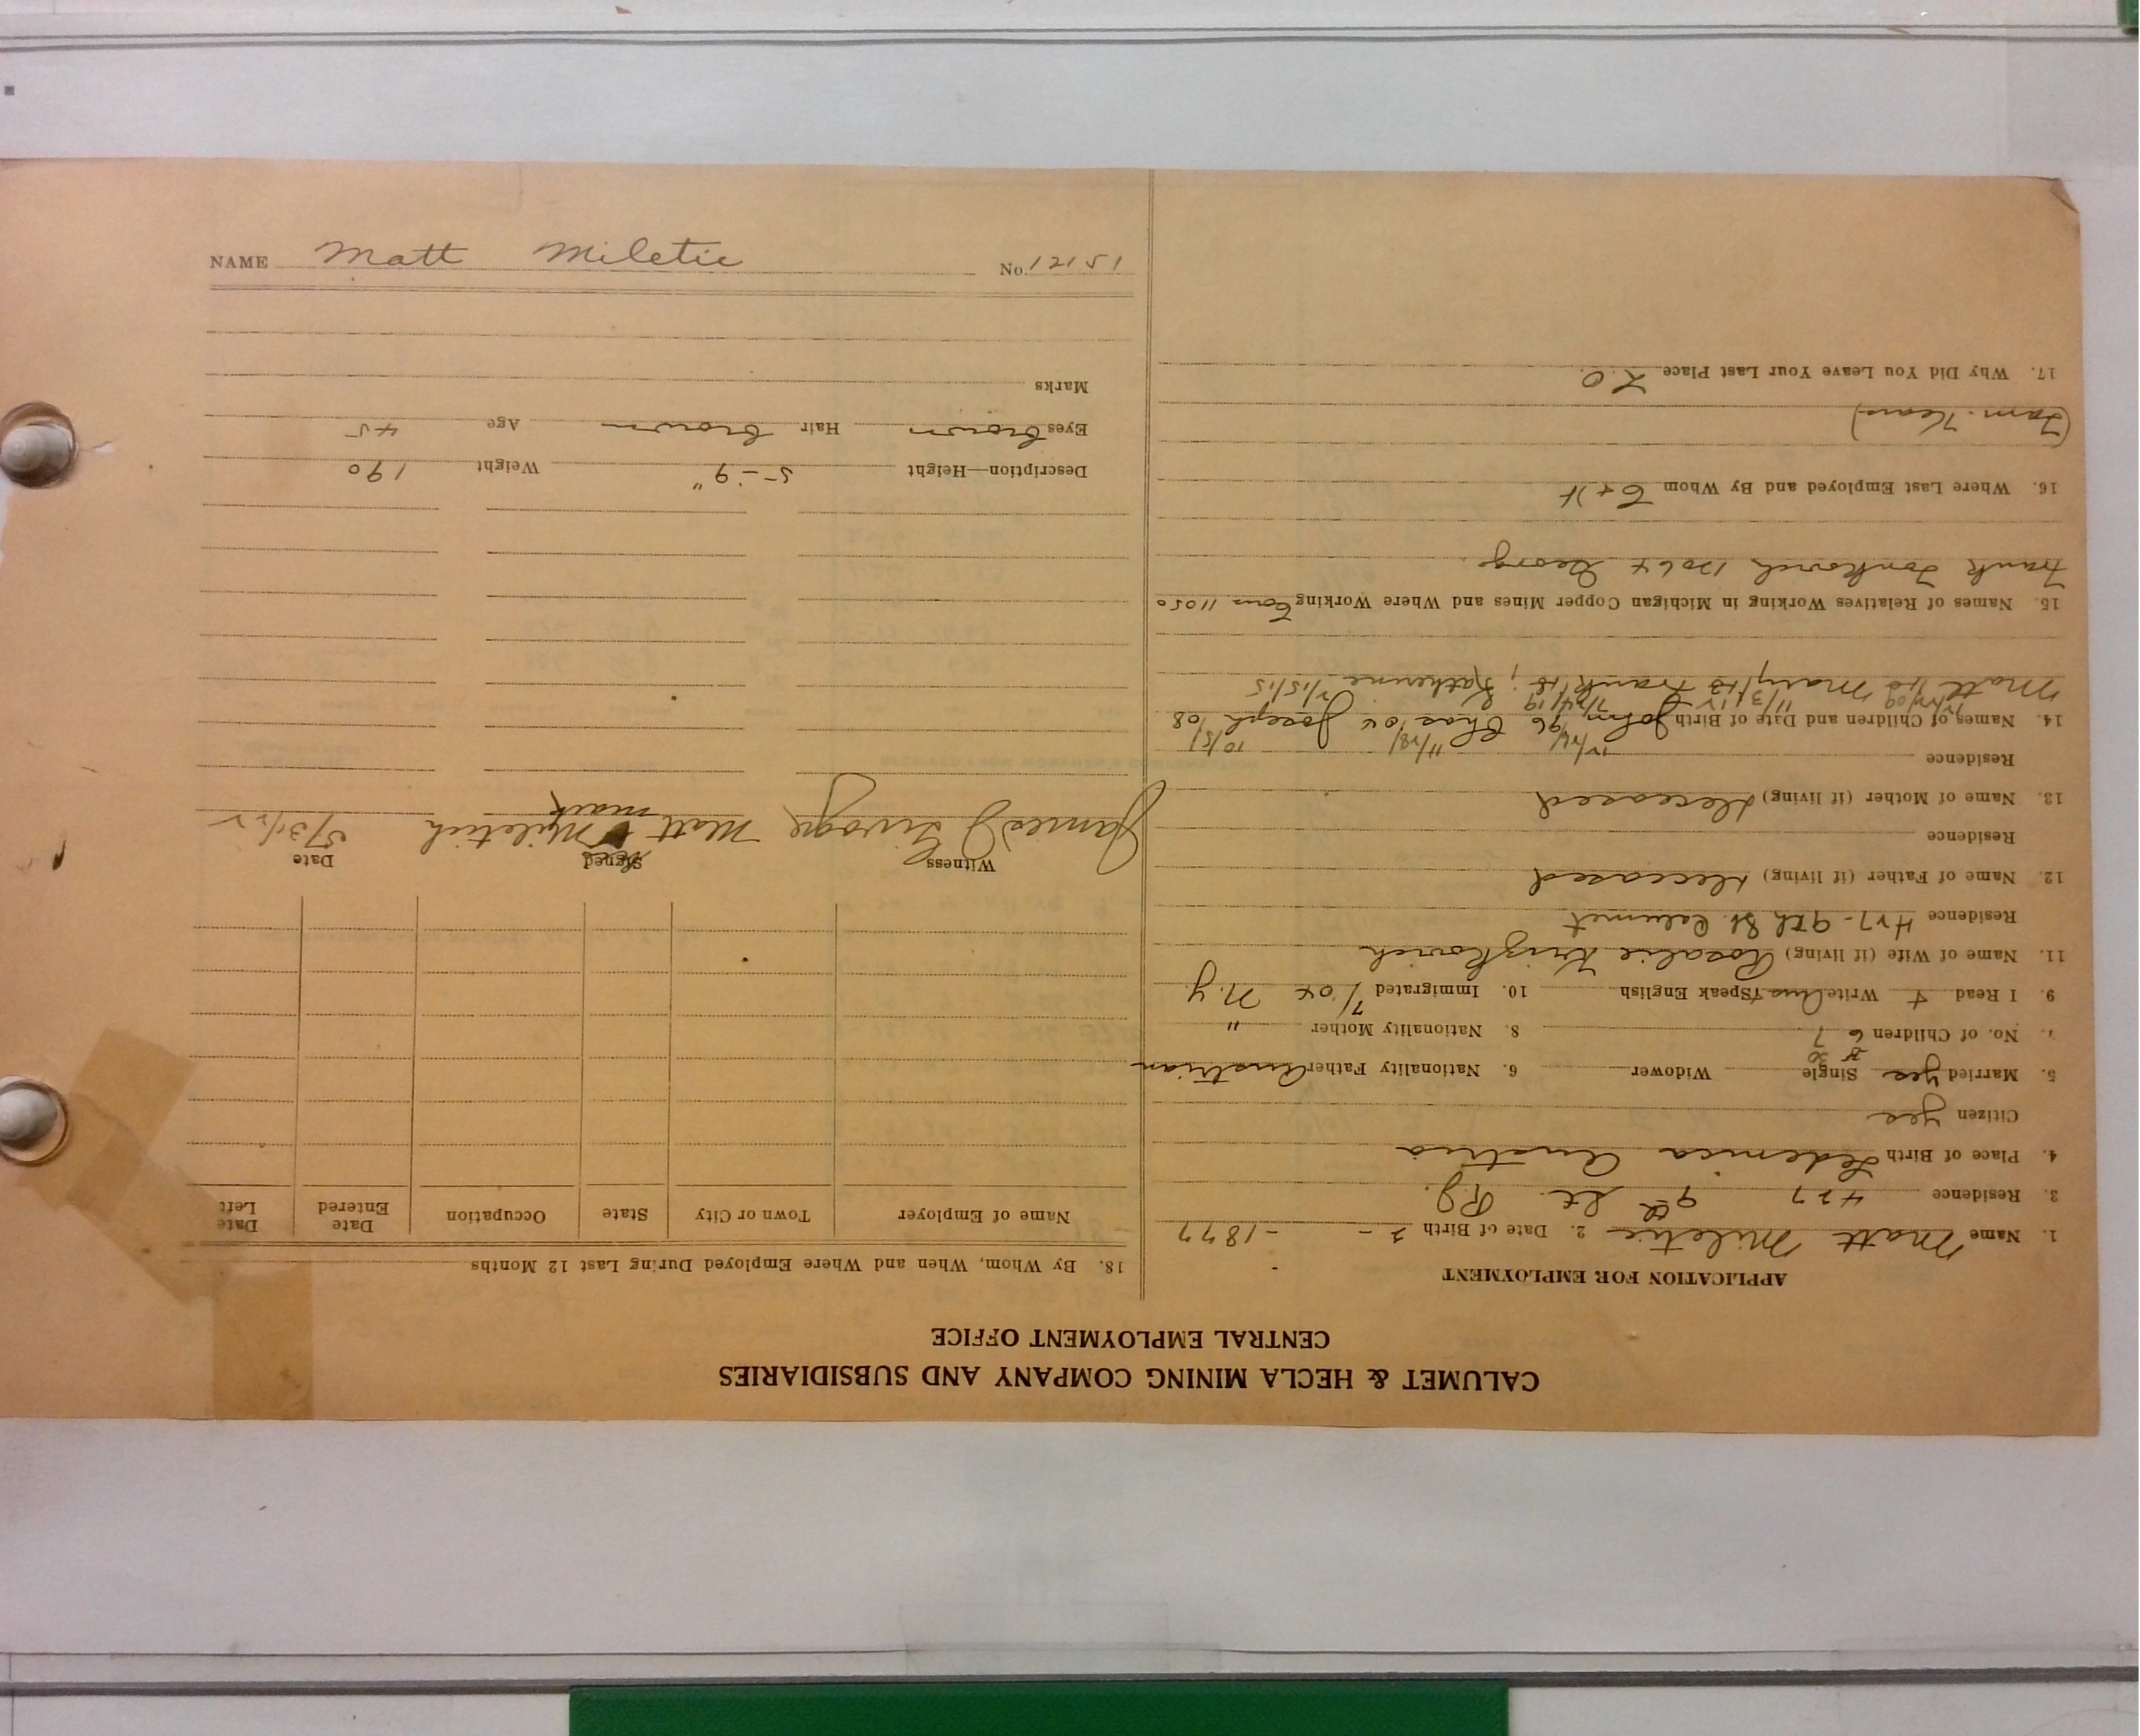 NAME Matt Miletic No. 12151
CALUMET & HECLA MINING COMPANY AND SUBSIDIARIES
CENTRAL EMPLOYMENT OFFICE
APPLICATION FOR EMPLOYMENT
1. Name Matt Miletic 2. Date of Birth 2 - - 1877
3. Residence 427 9th St.
4. Place of Birth Ledenica Austria
Citizen yes
5. Married yes Single Widower 6. Nationality Father Austrian
7. No. of Children 6 7 8. Nationality Mother "
9. I Read + Write Speak English 10. Immigrated 7/04 N.Y.
11. Name of Wife (if living) Rosalie
Residence 427-9th St. Calumet
12. Name of Father (if living) Deceased
Residence
13. Name of Mother (if living) Deceased
Residence
14. Names of Children and Date of Birth John 96 Chas 04 Joseph 08
Matt Mary Frank Katherine
15. Names of Relatives Working in Michigan Copper Mines and Where Working 11050
Frank Tonkovich George.
16. Where Last Employed and By Whom C+H
17. Why Did You Leave Your Last Place L.O.
18. By Whom, When and Where Employed During Last 12 Months
Name of Employer Town or City State Occupation Date Entered Date Left
Witness Signed Date
James Matt Miletich 5/31/22
mark
Description—Height 5-9" Weight 190
Eyes brown Hair brown Age 45
Marks